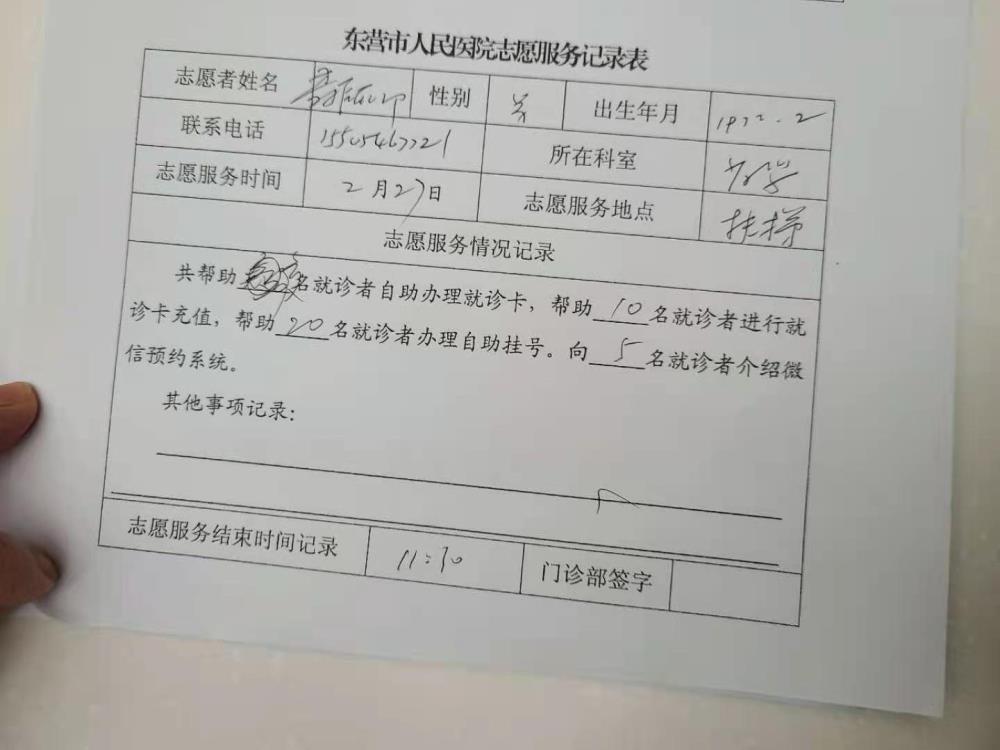 东营市人民医院志愿服务记录表
志愿者姓名 性别 出生年月 1972.2
联系电话 15505467721 所在科室
志愿服务时间 2月27日 志愿服务地点 扶梯
志愿服务情况记录
共帮助 名就诊者自助办理就诊卡，帮助 10 名就诊者进行就
诊卡充值，帮助 20 名就诊者办理自助挂号。向 5 名就诊者介绍微
信预约系统。
其他事项记录：
志愿服务结束时间记录 11:30 门诊部签字